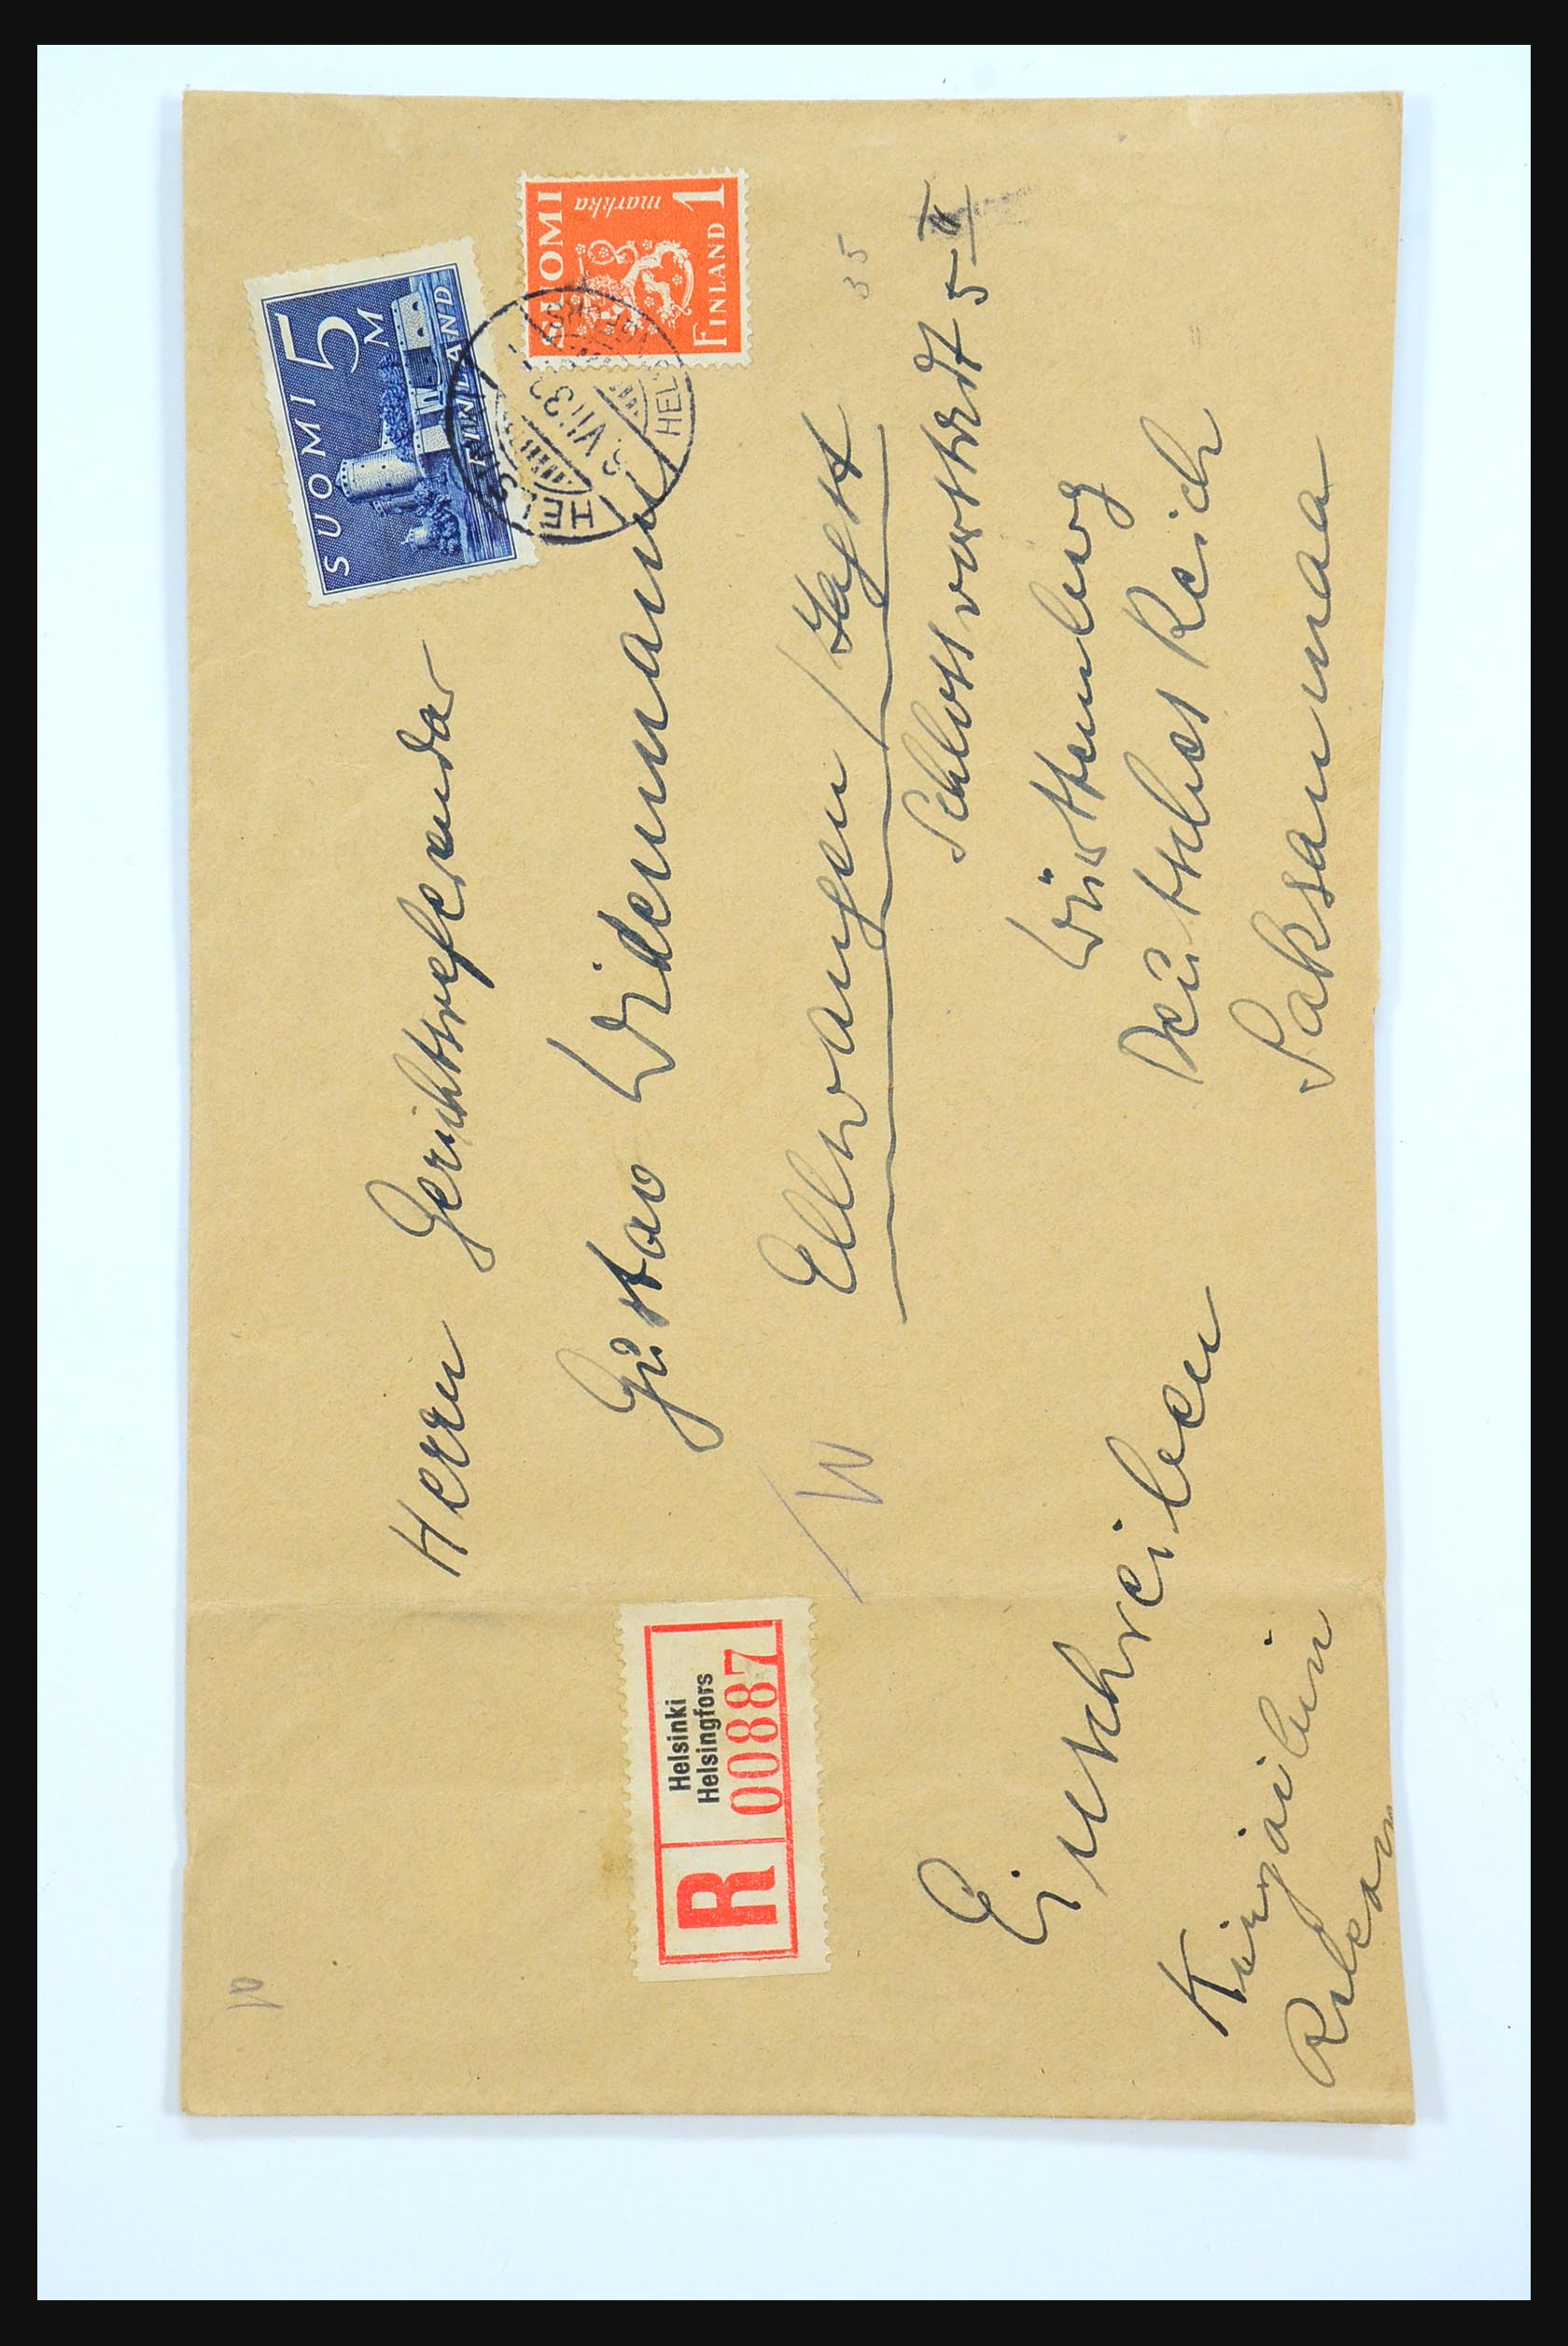 SUOMI 5 M
FINLAND
SUOMI
markka 1
FINLAND
Herrn Gerichtsreferendar
Gustav Widenmann
Ellwangen / Jagst
35
Schlossvorstadt 5 II
Württemberg
Deutsches Reich
Saksanmaa
R
Helsinki
Helsingfors
00887
Einschreiben
Kirjattu